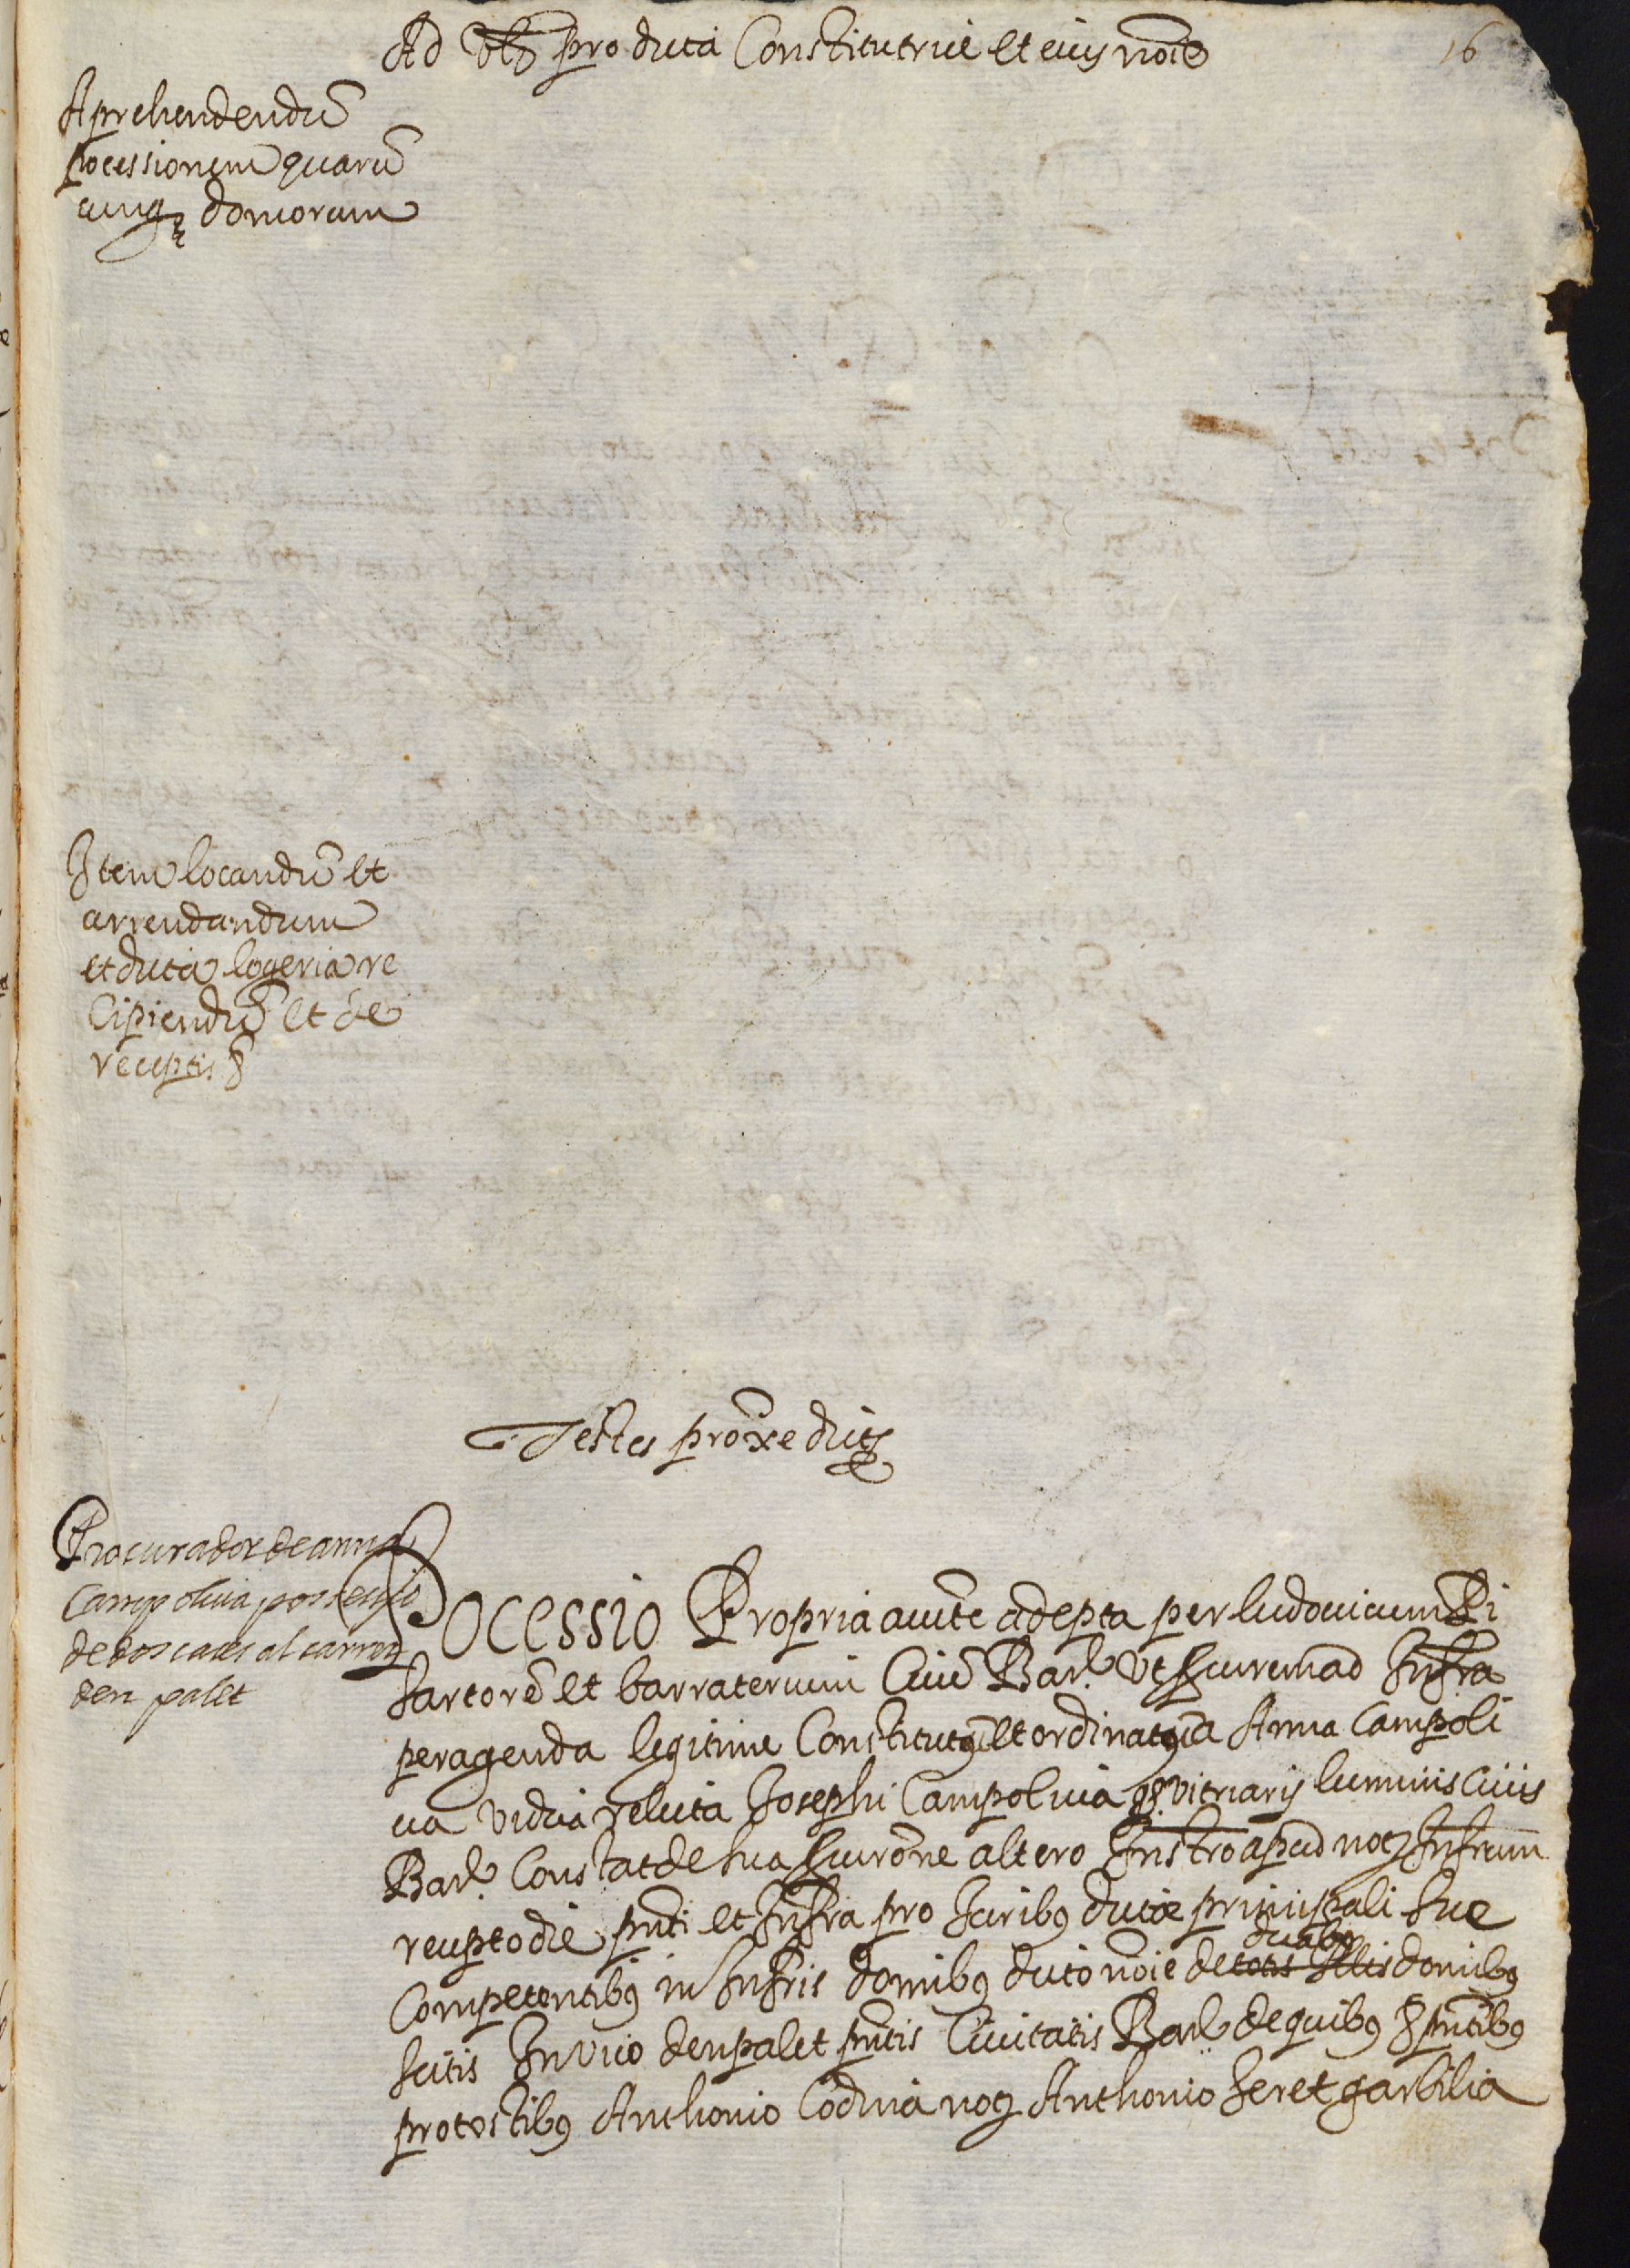 Ad pro dicta Constitutrice et eius noīe
16
Aprehendendū
pocessionem quarū
cunqȝ domorum
Item locandū et
arrendandum
et dicta logeria re
cipiendū et de
receptis
Testes proxe dicti
Procurador de anna
Campoliva possessio
de dos cases al carrer
den palet
Pocessio Propria aucte adepta per ludovicum Pi
sartorē et barraterium Civē Barᵉ. ut procurem ad Infra
peragenda legitime Constitutū et ordinatū a Anna Campoli
va vidua relicta Josephi Campoliva qº. vitriarij luminis Civis
Barᵉ. Constat de sua procurōne altero Instrō apud notm Infrum
recepto die pnti et Infra pro Juribꝰ dicte principali sue
Competentibꝰ in Infris domibꝰ dicto noīe de totis Illis duabꝰ domibꝰ
scitis In vico den palet pntis Civitatis Barᵉ de quibꝰ pntibꝰ
pro testibꝰ Anthonio Codina noṭ Anthonio Seret garbilia